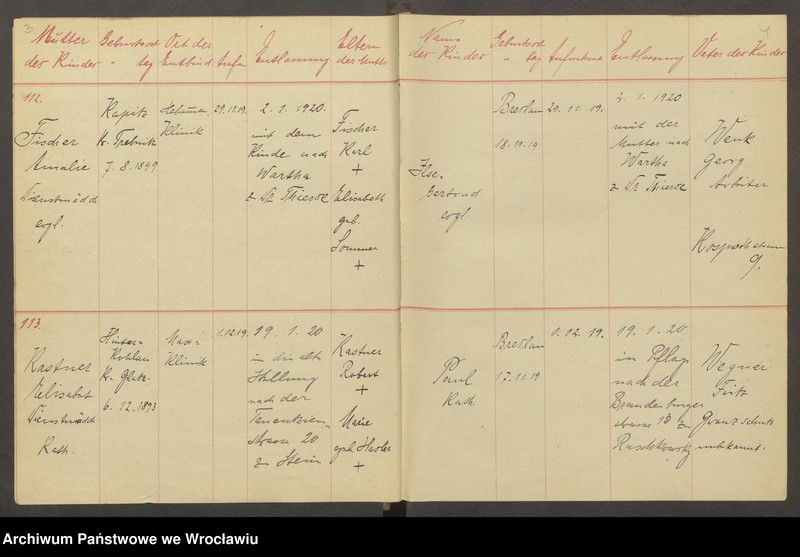 3
4
Mutter der Kinder
Geburtsort " tag
Ort der Entbind.
Aufn.
Entlassung
Eltern der Mutter
Name der Kinder
Geburtsort " tag
Aufnahme
Entlassung
Vater der Kinder
112.
Fischer
Amalie
Dienstmädch
evgl.
Kapitz
Kr. Trebnitz
7. 8. 1899
Klinik
29.12.19.
2. 1. 1920.
mit dem
Kinde nach
Wartha
z
Fischer
Karl
+
Elisabeth
geb.
Sommer
+
Ilse
Gertrud
evgl.
Breslau
18.11.19
29. 11. 19.
1. 1920
mit der
Mutter nach
Wartha
z
Wenk
Georg
Arbeiter
9.
113.
Kastner
Elisabet
Dienstmädch
Kath.
Kr. Glatz.
6. 12. 1893
Klinik
1.12.19.
19. 1. 20
in die alte
Stellung
nach der
Tauentzien-
strasse 20
z Stein
Kastner
Robert
+
Marie
geb.
+
Paul
Kath.
Breslau
17.11.19
1. 12. 19.
19. 1. 20
in Pflege
nach der
Brandenburger
strasse
Wegner
Fritz
unbekannt.
Archiwum Państwowe we Wrocławiu